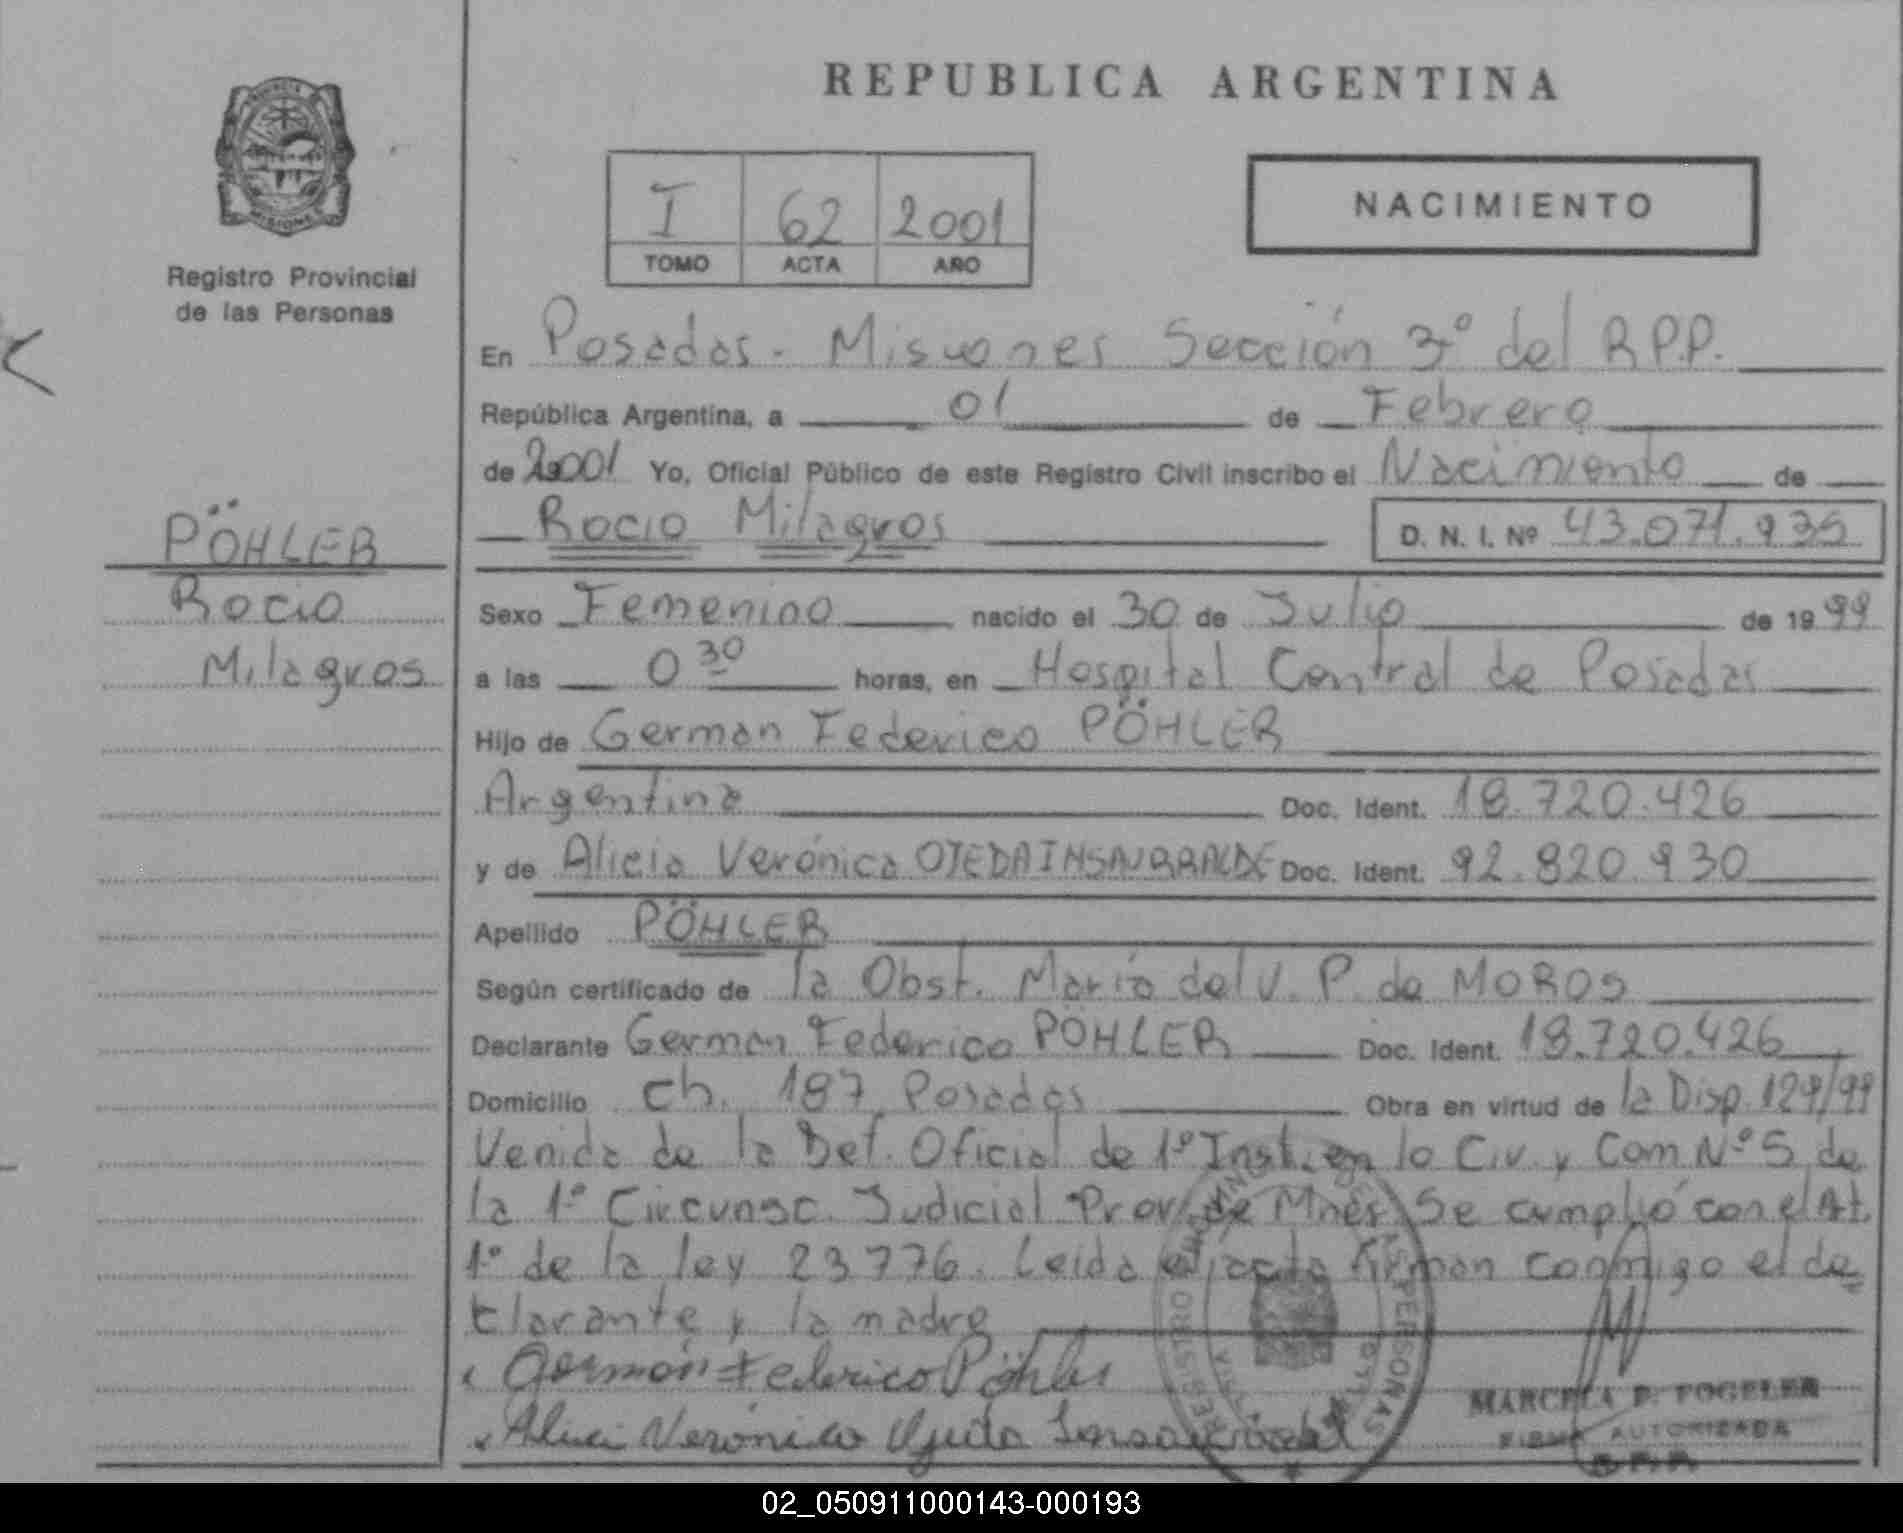 PROVINCIA
MISIONES
Registro Provincial
de las Personas
PÖHLER
Rocio
Milagros
REPUBLICA ARGENTINA
I 62 2001
TOMO ACTA AÑO
NACIMIENTO
En Posadas - Misiones Sección 3º del R.P.P.
República Argentina, a 01 de Febrero
de 2001 Yo, Oficial Público de este Registro Civil inscribo el Nacimiento de
Rocio Milagros D. N. I. Nº 43.071.935
Sexo Femenino nacido el 30 de Julio de 1999
a las 0 30 horas, en Hospital Central de Posadas
Hijo de German Federico PÖHLER
Argentina Doc. Ident. 18.720.426
y de Alicia Verónica OJEDA INSAURRALDE Doc. Ident. 92.820.930
Apellido PÖHLER
Según certificado de la Obst. María del V. P. de MOROS
Declarante German Federico PÖHLER Doc. Ident. 18.720.426
Domicilio Ch. 187 Posadas Obra en virtud de la Disp. 129/99
Venida de la Def. Oficial de 1º Inst. en lo Civ. y Com Nº 5 de
la 1º Circunsc. Judicial Prov. de Mnes. Se cumplió con el Art.
1º de la ley 23776. Leida el acta firman conmigo el de=
clarante y la madre
Germán Federico Pöhler
Alicia Verónica Ojeda Insaurralde
REGISTRO PROVINCIAL DE LAS PERSONAS
MARCELA E. FOGELER
FIRMA AUTORIZADA
R.P.P.
02_050911000143-000193